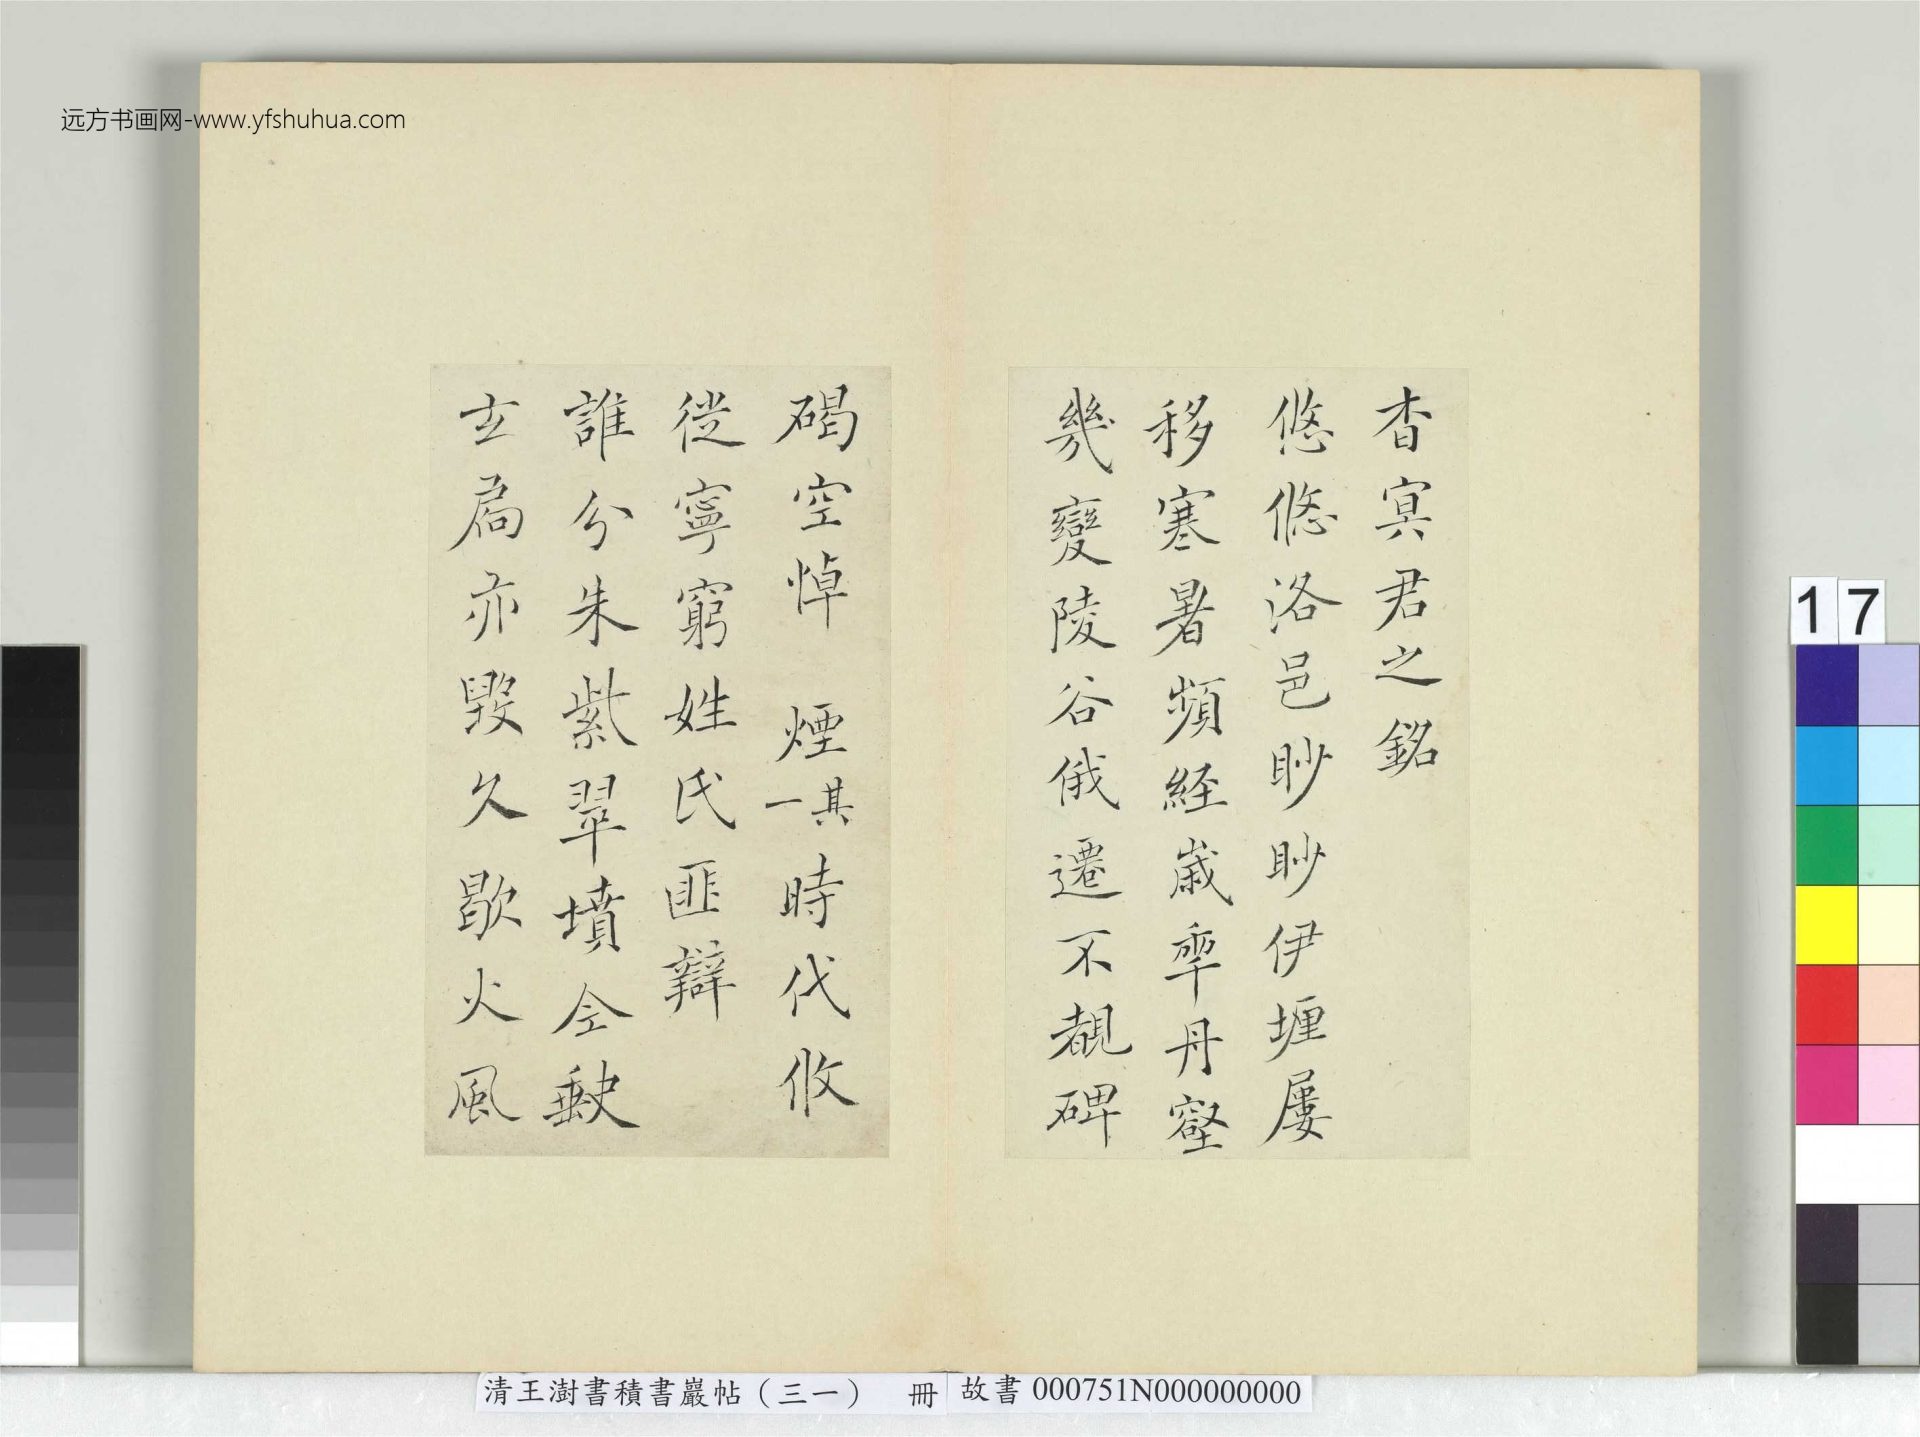 杳冥君之銘
悠悠洛邑眇眇伊堙屢
移寒暑頻經歲年丹壑
幾變陵谷俄遷不覩碑
碣空悼　煙其一時代攸
從寧窮姓氏匪辯
誰分朱紫翠墳全缺
玄扃亦毀久歇火風
远方书画网-www.yfshuhua.com
17
清王澍書積書巖帖（三一）　冊　故書 000751N000000000